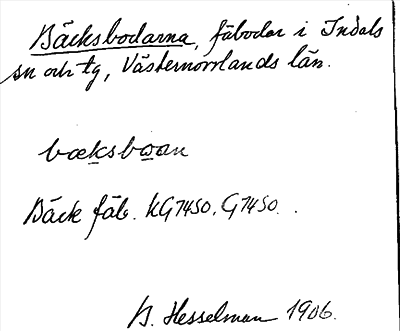 Bäcksbodarna, fäbodar i Indals
sn och tg, Västernorrlands län.
bœksbωan
Bäck fäb. KG7450. G7450.
B. Hesselman 1906.